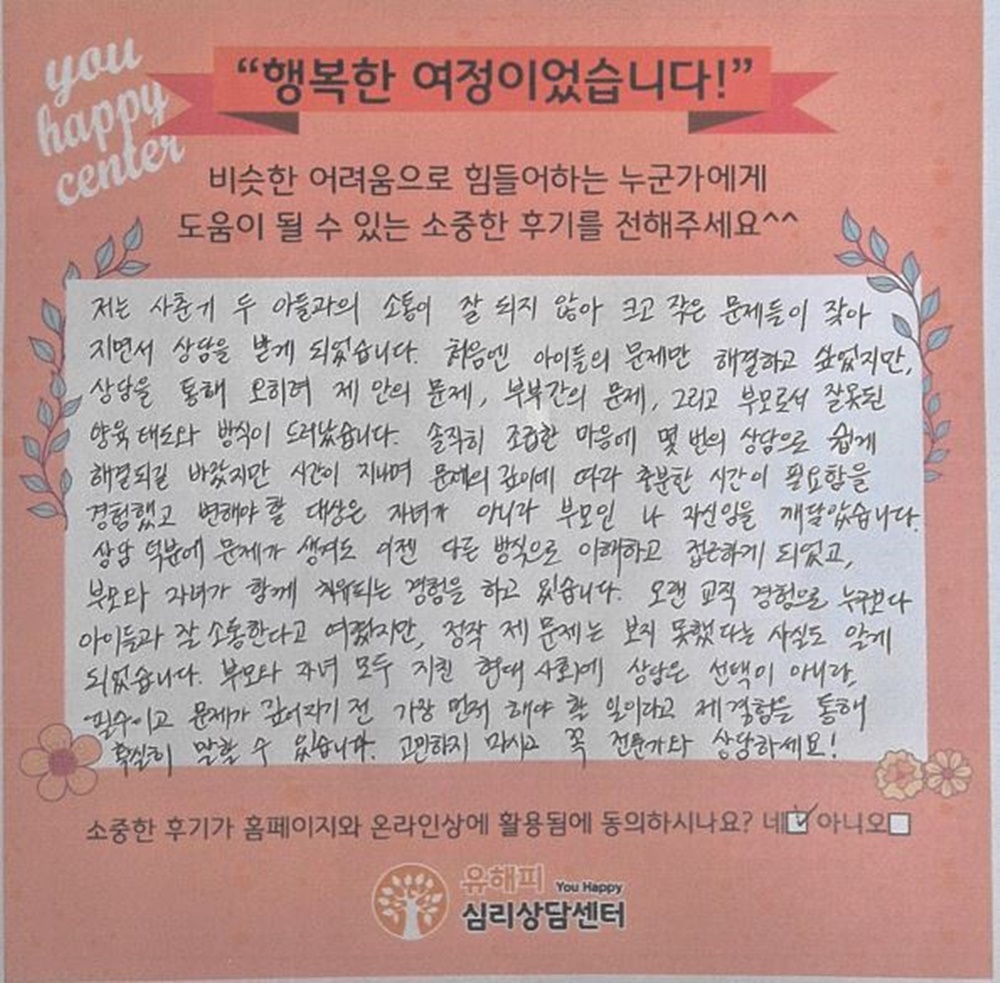 you
happy
center
“행복한 여정이었습니다!”
비슷한 어려움으로 힘들어하는 누군가에게
도움이 될 수 있는 소중한 후기를 전해주세요^^
저는 사춘기 두 아들과의 소통이 잘 되지 않아 크고 작은 문제들이 잦아
지면서 상담을 받게 되었습니다. 처음엔 아이들의 문제만 해결하고 싶었지만,
상담을 통해 오히려 제 안의 문제, 부부간의 문제, 그리고 부모로서 잘못된
양육 태도와 방식이 드러났습니다. 솔직히 조급한 마음에 몇 번의 상담으로 쉽게
해결되길 바랐지만 시간이 지나며 문제의 깊이에 따라 충분한 시간이 필요함을
경험했고 변해야 할 대상은 자녀가 아니라 부모인 나 자신임을 깨달았습니다.
상담 덕분에 문제가 생겨도 이젠 다른 방식으로 이해하고 접근하게 되었고,
부모와 자녀가 함께 치유되는 경험을 하고 있습니다. 오랜 교직 경험으로 누구보다
아이들과 잘 소통한다고 여겼지만, 정작 제 문제는 보지 못했다는 사실도 알게
되었습니다. 부모와 자녀 모두 지친 현대 사회에 상담은 선택이 아니라,
필수이고 문제가 깊어지기 전 가장 먼저 해야 할 일이라고 제 경험을 통해
확실히 말할 수 있습니다. 고민하지 마시고 꼭 전문가와 상담하세요!
소중한 후기가 홈페이지와 온라인상에 활용됨에 동의하시나요? 네☑ 아니오☐
유해피 You Happy
심리상담센터